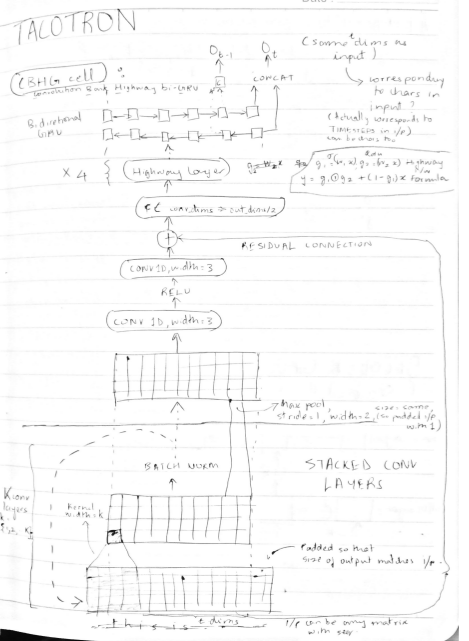 TALOTRON
(Same t dims as
input)
O_{t-1} O_t
CBHG cell
Convolution Bank Highway bi-GRU
CONCAT
corresponding
to chars in
input?
(Actually corresponds to
TIMESTEPS in i/p)
Bidirectional
GRU
× 4
Highway Layer
Highway
y = g₁⊙g₂ + (1-g₁)x formula
conv dims → out_dim/2
+
RESIDUAL CONNECTION
CONV 1D, width=3
RELU
CONV 1D, width=3
Max pool,
stride=1, width=2,
size: same,
(so padded i/p
with 1)
BATCH NORM
STACKED CONV
LAYERS
K conv
layers
Kernel
width: k
Padded so that
size of output matches i/p.
t dims
t h i s i s
i/p can be any matrix
with